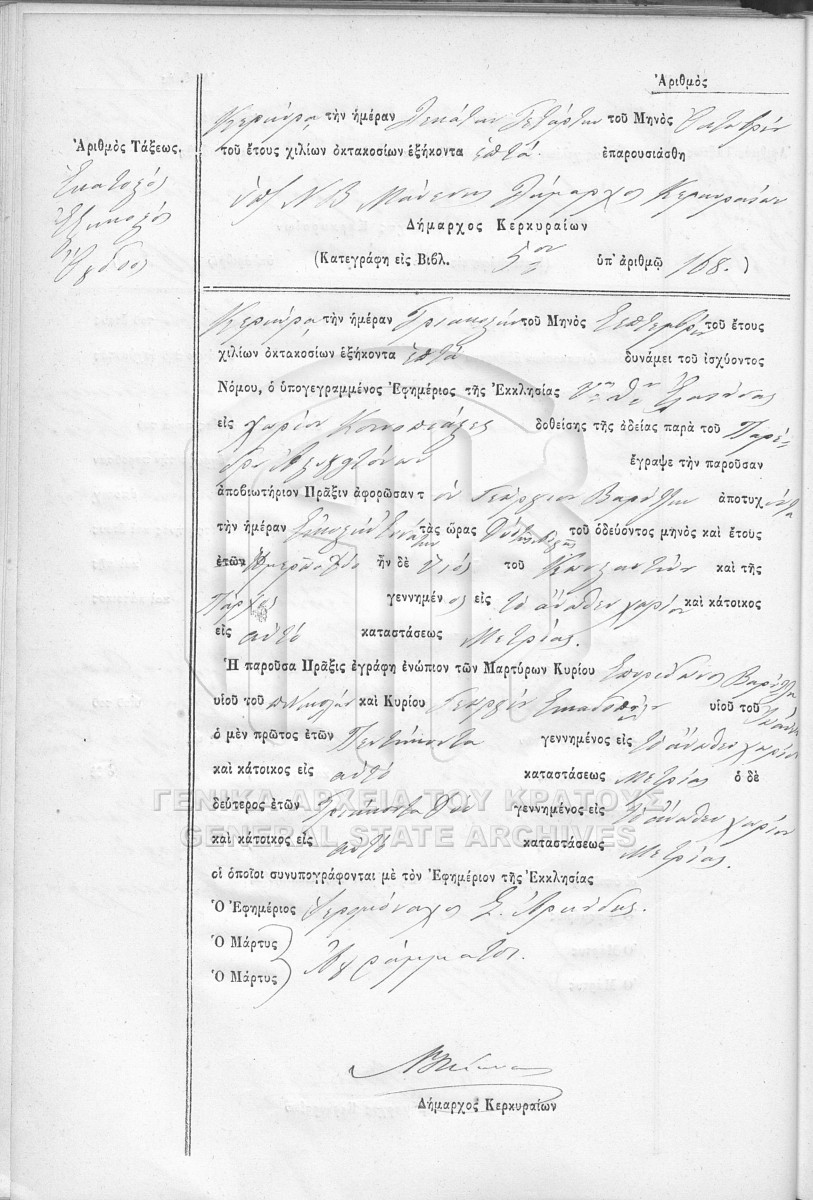 Ἀριθμὸς
Ἀριθμὸς Τάξεως.
Ἑκατοστὸς
Ἑξηκοστὸς
Ὄγδοος
Κερκύρᾳ τὴν ἡμέραν Δεκάτην Τετάρτην τοῦ Μηνὸς Ὀκτωβρίου
τοῦ ἔτους χιλίων ὀκτακοσίων ἑξήκοντα ἑπτά. ἐπαρουσιάσθη
Ν Β Μάνεσης Δήμαρχος Κερκυραίων
Δήμαρχος Κερκυραίων
(Κατεγράφη εἰς Βιβλ. 5ον ὑπ' ἀριθμῷ 168.)
Κερκύρᾳ τὴν ἡμέραν Τριακοστὴν τοῦ Μηνὸς Σεπτεμβρίου τοῦ ἔτους
χιλίων ὀκτακοσίων ἑξήκοντα ἑπτὰ δυνάμει τοῦ ἰσχύοντος
Νόμου, ὁ ὑπογεγραμμένος Ἐφημέριος τῆς Ἐκκλησίας
εἰς χωρίον δοθείσης τῆς ἀδείας παρὰ τοῦ Παρέ-
δρου ἔγραψε τὴν παροῦσαν
ἀποβιωτήριον Πρᾶξιν ἀφορῶσαν τὸν Γεώργιον ἀποτυχόντα
τὴν ἡμέραν Εἰκοστὴν Ἐνάτην τὰς ὥρας τοῦ ὁδεύοντος μηνὸς καὶ ἔτους
ἐτῶν Ἡμερῶν δύο ἦν δὲ υἱὸς τοῦ Κωνσταντίνου καὶ τῆς
γεννημένος εἰς τὸ ἄνωθεν χωρίον καὶ κάτοικος
εἰς αὐτὸ καταστάσεως Μετρίας.
Ἡ παροῦσα Πρᾶξις ἐγράφη ἐνώπιον τῶν Μαρτύρων Κυρίου Σπυρίδωνος
υἱοῦ τοῦ π Νικολάου καὶ Κυρίου Γεωργίου υἱοῦ τοῦ Ἰωάννου
ὁ μὲν πρῶτος ἐτῶν Πεντήκοντα γεννημένος εἰς τὸ ἄνωθεν χωρίον
καὶ κάτοικος εἰς αὐτὸ καταστάσεως Μετρίας ὁ δὲ
δεύτερος ἐτῶν Τριάκοντα δύο γεννημένος εἰς τὸ ἄνωθεν χωρίον
καὶ κάτοικος εἰς αὐτὸ καταστάσεως Μετρίας.
οἱ ὁποῖοι συνυπογράφονται μὲ τὸν Ἐφημέριον τῆς Ἐκκλησίας
Ὁ Ἐφημέριος Ἱερομόναχος Σ.
Ὁ Μάρτυς
Ἀγράμματοι.
Ὁ Μάρτυς
Δήμαρχος Κερκυραίων
ΓΕΝΙΚΑ ΑΡΧΕΙΑ ΤΟΥ ΚΡΑΤΟΥΣ
GENERAL STATE ARCHIVES